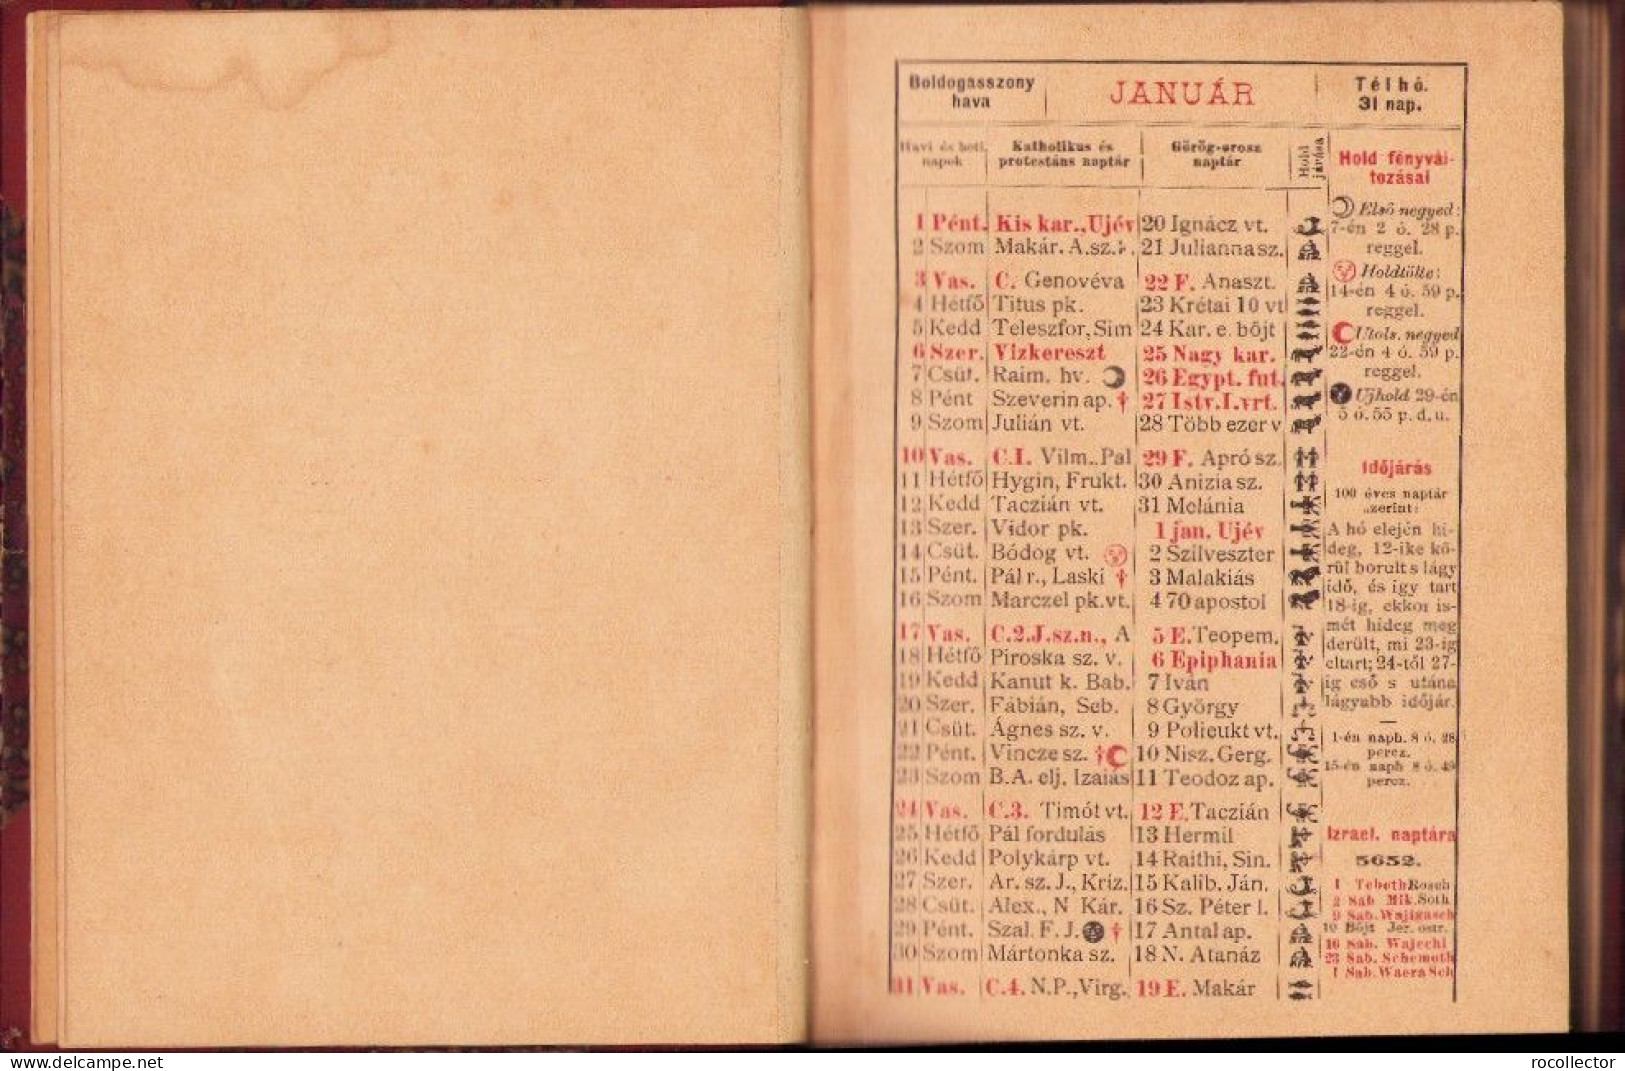 Boldogasszony hava
JANUÁR
Télhó. 31 nap.
Havi és heti napok
Katholikus és protestáns naptár
Görög-orosz naptár
Hold járása
1 Pént. Kis kar., Ujév 20 Ignácz vt.
2 Szom Makár. A. sz. 21 Julianna sz.
3 Vas. C. Genovéva 22 F. Anaszt.
4 Hétfő Titus pk. 23 Krétai 10 vt
5 Kedd Teleszfor, Sim 24 Kar. e. böjt
6 Szer. Vizkereszt 25 Nagy kar.
7 Csüt. Raim. hv. 26 Egypt. fut.
8 Pént Szeverin ap. † 27 Istv. I. vrt.
9 Szom Julián vt. 28 Több ezer v
10 Vas. C. I. Vilm., Pal 29 F. Apró sz.
11 Hétfő Hygin, Frukt. 30 Anizia sz.
12 Kedd Taczián vt. 31 Melánia
13 Szer. Vidor pk. 1 jan. Ujév
14 Csüt. Bódog vt. 2 Szilveszter
15 Pént. Pál r., Laski † 3 Malakiás
16 Szom Marczel pk. vt. 4 70 apostol
17 Vas. C. 2. J. sz. n., A 5 E. Teopem.
18 Hétfő Piroska sz. v. 6 Epiphania
19 Kedd Kanut k. Bab. 7 Iván
20 Szer. Fábián, Seb. 8 György
21 Csüt. Ágnes sz. v. 9 Polieukt vt.
22 Pént. Vincze sz. † 10 Nisz. Gerg.
23 Szom B. A. elj. Izaiás 11 Teodoz ap.
24 Vas. C. 3. Timót vt. 12 E. Taczián
25 Hétfő Pál fordulás 13 Hermil
26 Kedd Polykárp vt. 14 Raithi, Sin.
27 Szer. Ar. sz. J., Kriz. 15 Kalib. Ján.
28 Csüt. Alex., N Kár. 16 Sz. Péter l.
29 Pént. Szal. F. J. † 17 Antal ap.
30 Szom Mártonka sz. 18 N. Atanáz
31 Vas. C. 4. N. P., Virg. 19 E. Makár
Hold fényvál-
tozásai
Első negyed:
7-én 2 ó. 28 p.
reggel.
Holdtölte:
14-én 4 ó. 59 p.
reggel.
Utols. negyed
22-én 4 ó. 59 p.
reggel.
Ujhold 29-én
5 ó. 55 p. d. u.
Időjárás
100 éves naptár
szerint:
A hó elején hi-
deg, 12-ike kö-
rül borult s lágy
idő, és igy tart
18-ig, ekkor is-
mét hideg meg
derült, mi 23-ig
eltart; 24-től 27-
ig eső s utána
lágyabb időjár.
1-én naph. 8 ó. 28
percz.
15-én naph 8 ó. 49
percz.
Izrael. naptára
5652.
1 Tebeth Rosch
2 Sab Mik. Soth
9 Sab. Wajigasch
10 Böjt Jer. ostr.
16 Sab. Wajechi
23 Sab. Schemoth
1 Sab. Waera Sch
delcampe.net
rocollector